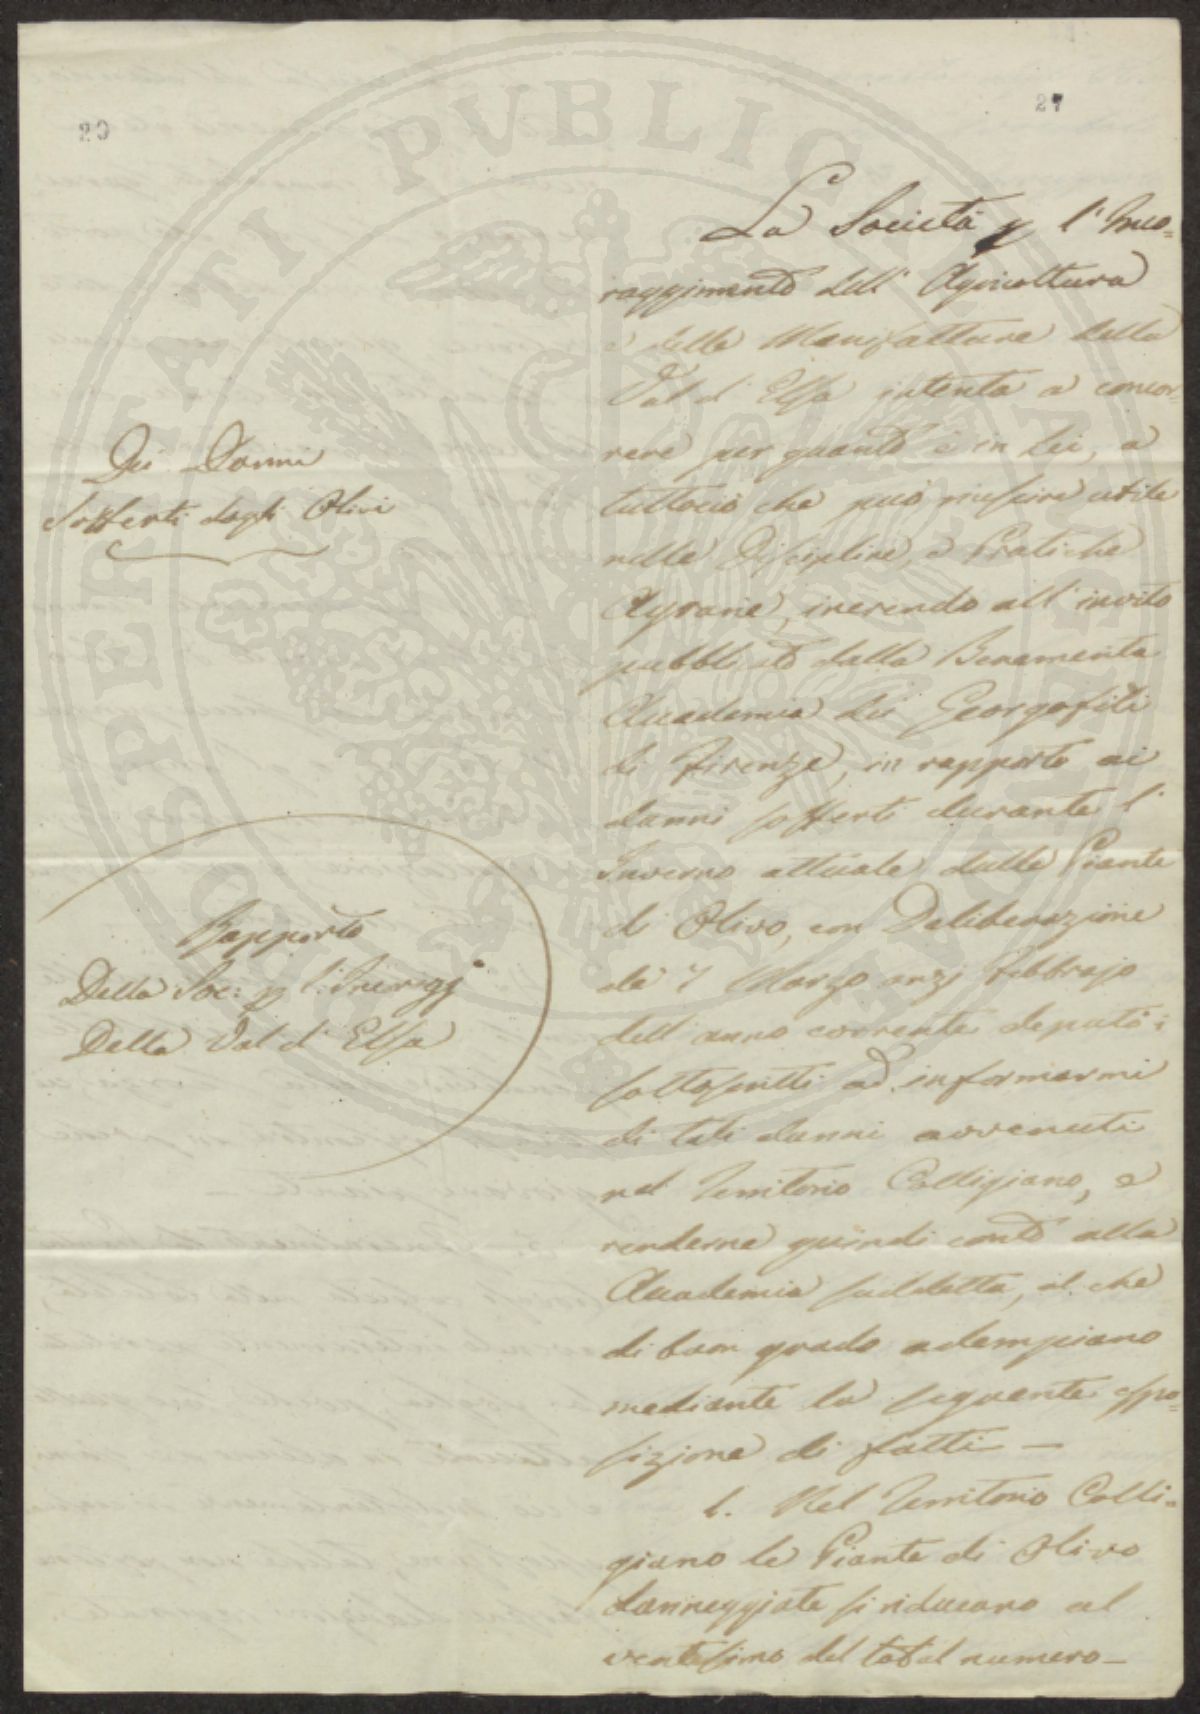 20
27
Dei Danni
Sofferti dagli Olivi
Rapporto
Della Soc: p l'Incoragg.
Della Val d'Elsa
La Società p l'Inco=
raggimento dell'Agricoltura
e delle Manifatture della
Val d'Elsa intenta a concor=
rere per quanto è in Lei, a
tuttociò che può riuscire utile
nelle Discipline, e Pratiche
Agrarie, inerendo all'invito
pubblicato dalla Benemerita
Accademia dei Georgofili
di Firenze, in rapporto ai
danni sofferti durante l'
Inverno attuale dalle Piante
di Olivo, con Deliberazione
de 7 Marzo anzi Febbrajo
dell'anno corrente deputò i
sottoscritti ad informarmi
di tali danni avvenuti
nel Territorio Colligiano, e
renderne quindi conto alla
Accademia suddetta, il che
di buon grado adempiano
mediante la seguente espo=
sizione di fatti —
1. Nel Territorio Colli=
giano le Piante di Olivo
danneggiate si riducano al
ventesimo del total numero —
PROSPERITATI PVBLICAE